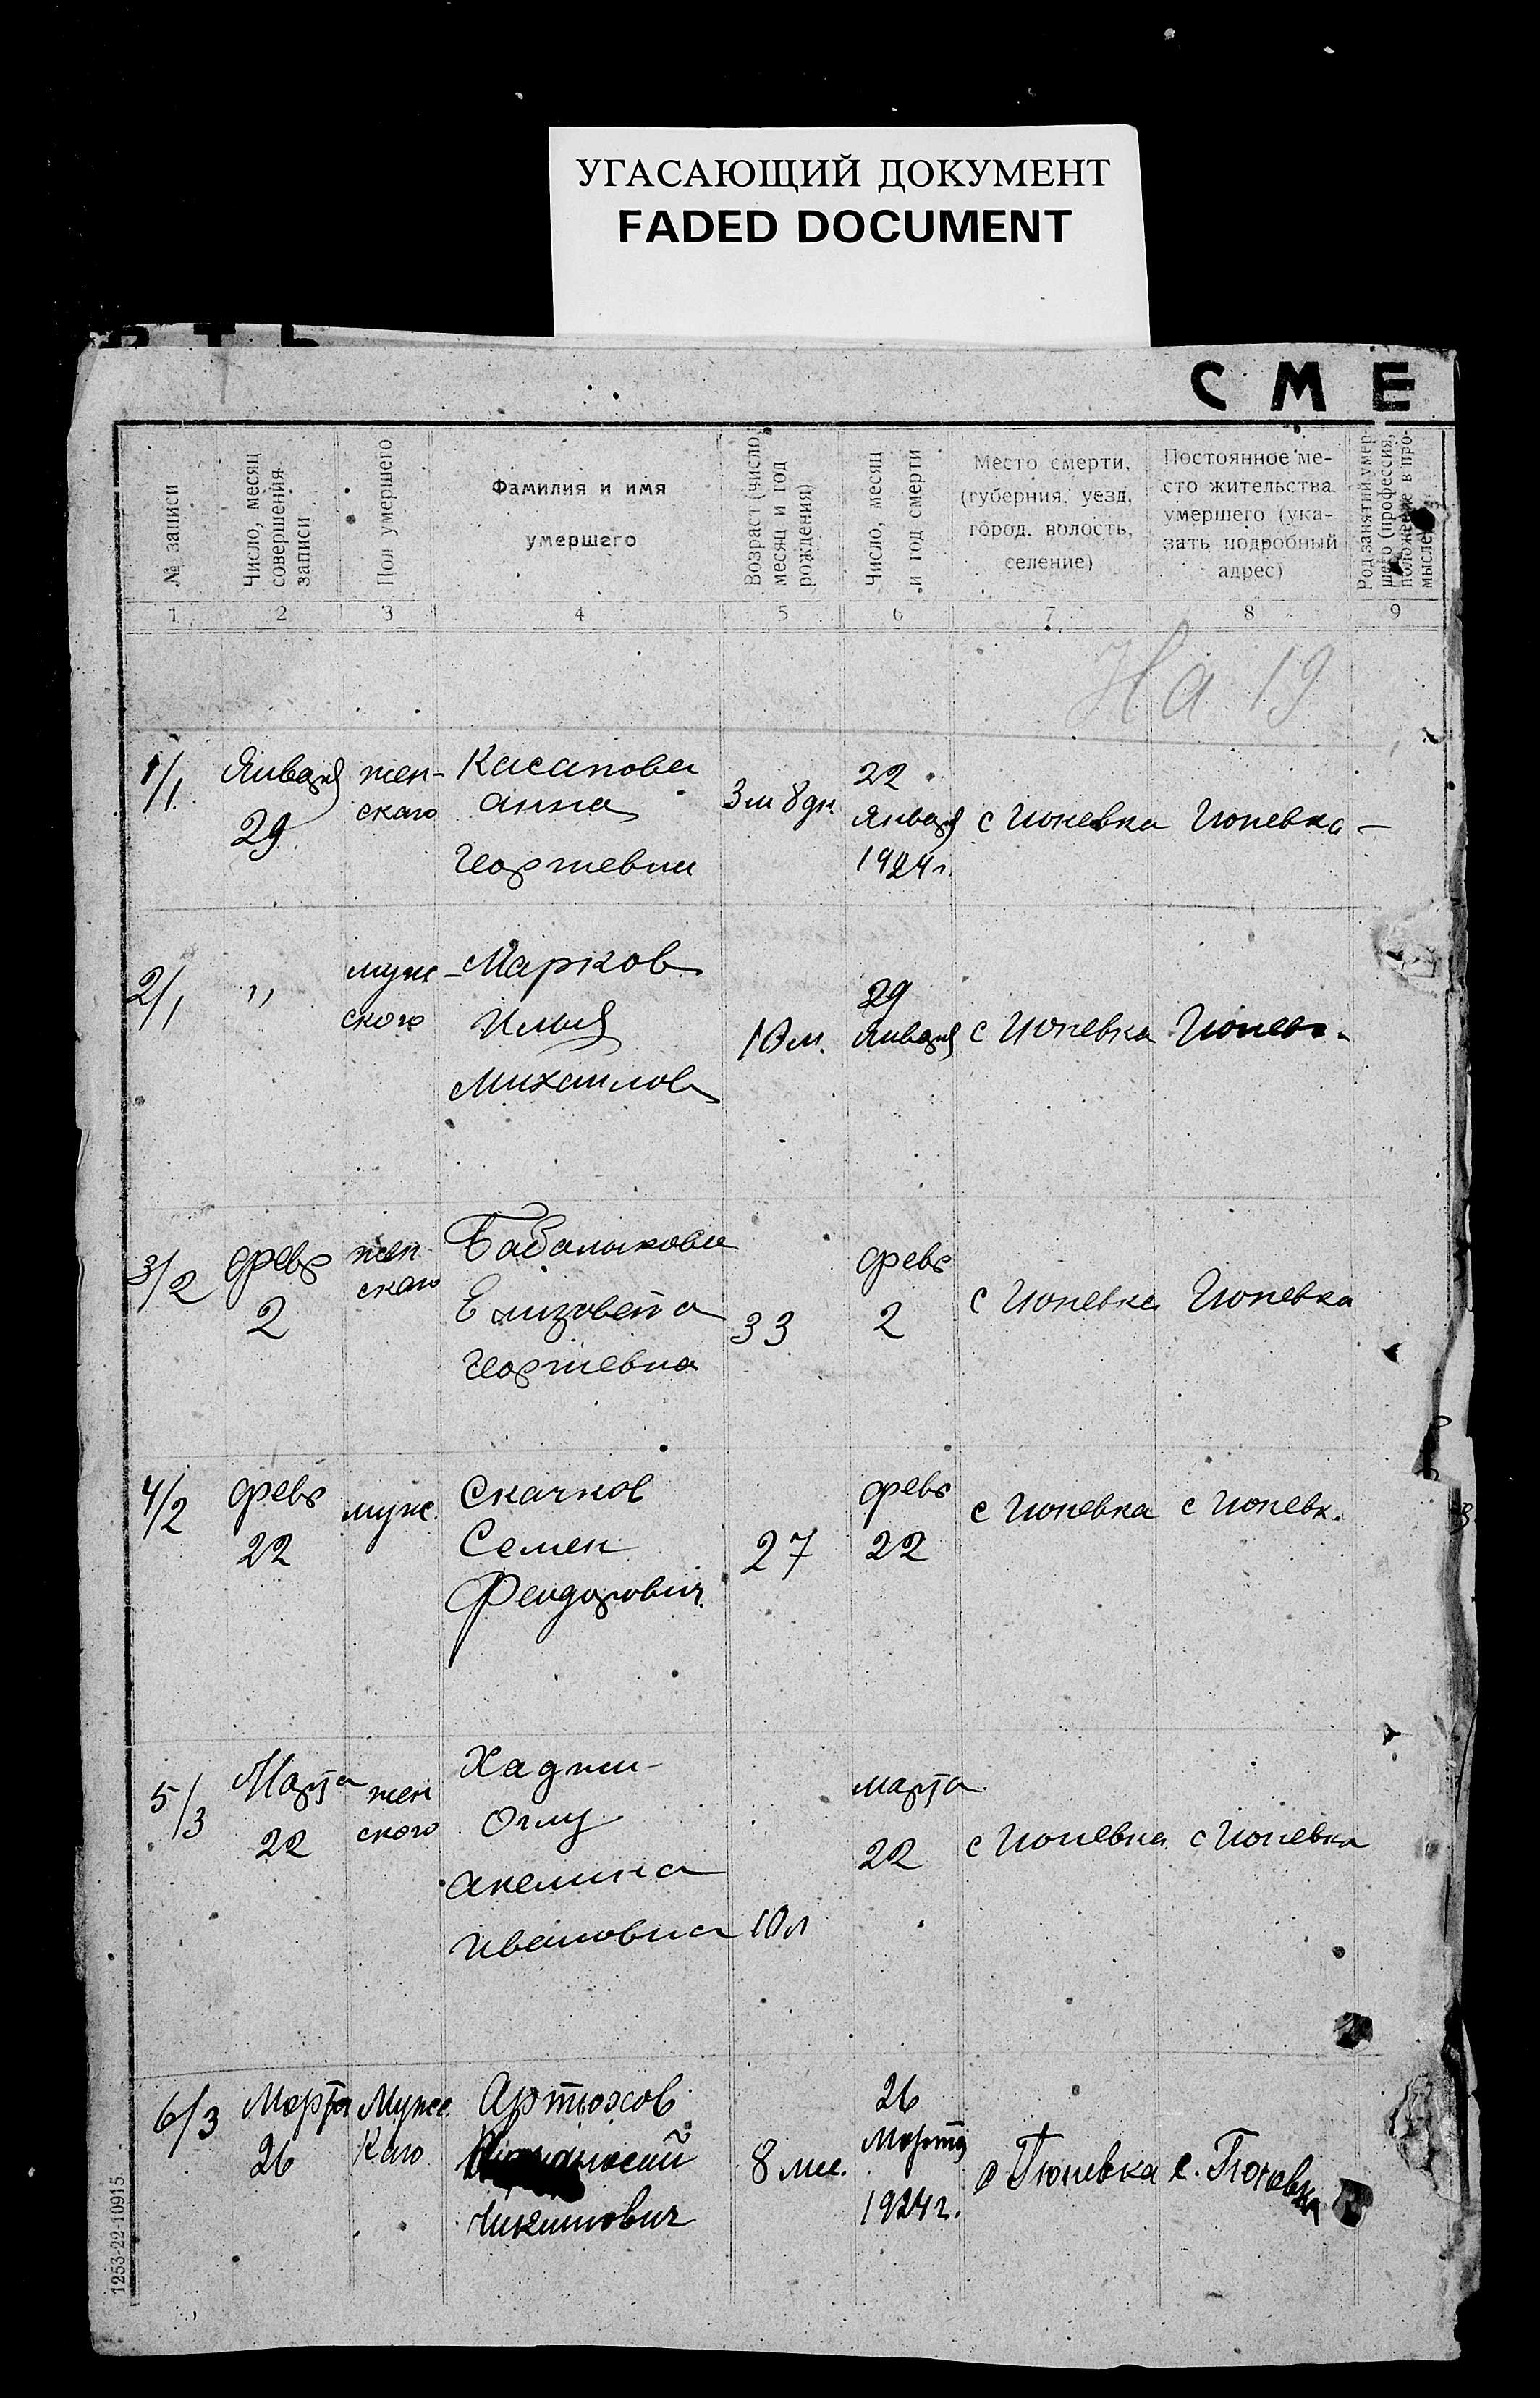 УГАСАЮЩИЙ ДОКУМЕНТ
FADED DOCUMENT
СМЕ
№ записи
Число, месяц
совершения
записи
Пол умершего
Фамилия и имя
умершего
Возраст (число,
месяц и год
рождения)
Число, месяц
и год смерти
Место смерти,
(губерния, уезд,
город, волость,
селение)
Постоянное ме-
сто жительства
умершего (ука-
зать подробный
адрес)
Род занятий умер-
шего (профессия,
положение в про-
мысле
1 2 3 4 5 6 7 8 9
На 19
1/1
Января
29
жен-
скаго
Касапова
Анна
Георгиевна
3 м 8 дн.
22
Января
1924 г.
с Гюневка
Гюневка —
2/1
"
муж-
ского
Марков
Илья
Михаилов
10 м.
29
Января
с Гюневка
Гюнев.
3/2
февр
2
жен
скаго
Бабалыкова
Елизовета
Георгиевна
33
февр
2
с Гюневка
Гюневка
4/2
февр
22
муж.
Скачков
Семен
Феодорович.
27
февр
22
с Гюневка
с Гюневк.
5/3
Марта
22
жен
ского
Хаджи-
Оглу
Акелина
Ивановна
10 л
марта
22
с Гюневка
с Гюневка
6/3
Марта
26
Муже
каго
Артюхов
8 ме.
26
Марта
1924 г.
с Гюневка
с. Гюневка
1253-22-10915